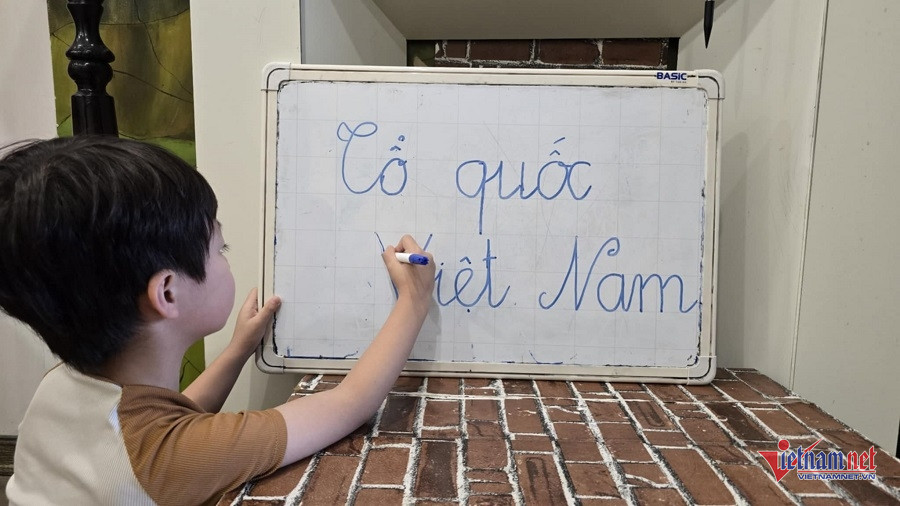 BASIC
Tổ quốc
Việt Nam
Vietnamnet
VIETNAMNET.VN